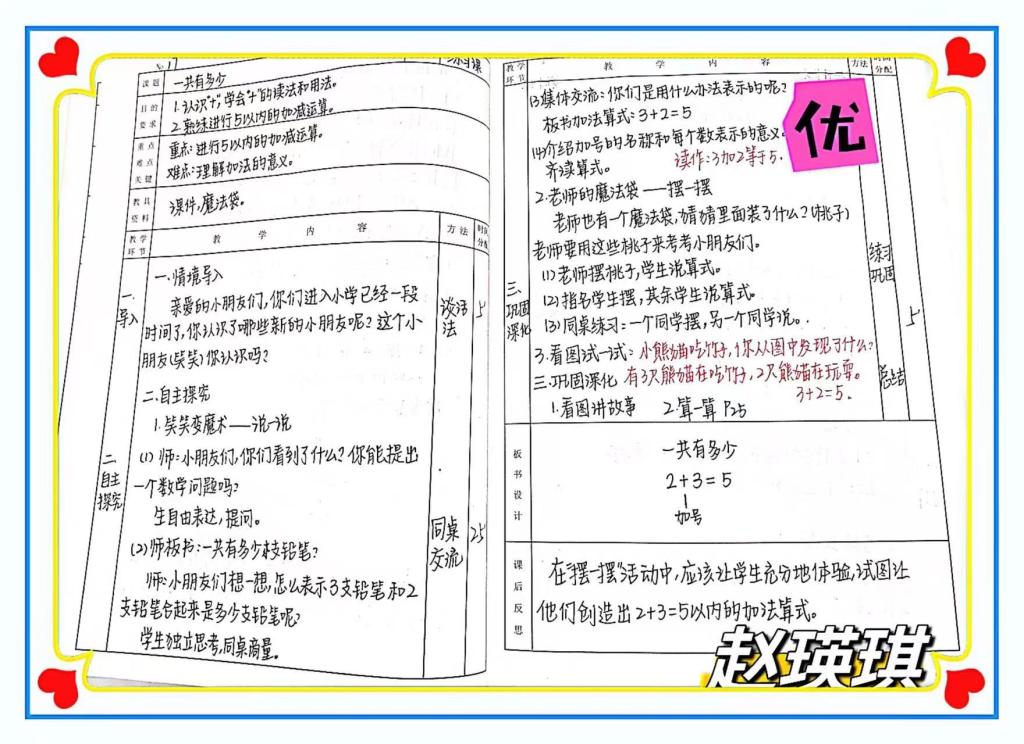 No.1
课题
一共有多少
练习课
目的
要求
1.认识"+",学会"+"的读法和用法。
2.熟练进行5以内的加减运算。
重点
难点
关键
重点:进行5以内的加减运算。
难点:理解加法的意义。
教具
资料
课件,魔法袋。
教学
环节
教 学 内 容
方法
时间
分配
一.
导入
一.情境导入
亲爱的小朋友们,你们进入小学已经一段
时间了,你认识了哪些新的小朋友呢?这个小
朋友(笑笑)你认识吗?
谈话
法
5
二.
自主
探究
二.自主探究
1.笑笑变魔术——说一说
(1)师:小朋友们,你们看到了什么?你能提出
一个数学问题吗?
生自由表达,提问。
(2)师板书:一共有多少支铅笔?
师:小朋友们想一想,怎么表示3支铅笔和2
支铅笔合起来是多少支铅笔呢?
学生独立思考,同桌商量。
同桌
交流
25
教学
环节
教 学 内 容
方法
时间
分配
(3)集体交流:你们是用什么办法表示的呢?
板书加法算式:3+2=5
(4)介绍加号的名称和每个数表示的意义。
齐读算式。
读作:3加2等于5.
优
2.老师的魔法袋——摆一摆
老师也有一个魔法袋,猜猜里面装了什么?(桃子)
老师要用这些桃子来考考小朋友们。
(1)老师摆桃子,学生说算式。
(2)指名学生摆,其余学生说算式。
(3)同桌练习:一个同学摆,另一个同学说。
3.看图试一试:小熊猫吃竹子,你从图中发现了什么?
三.巩固深化 有3只熊猫在吃竹子,2只熊猫在玩耍。
3+2=5.
1.看图讲故事 2.算一算 P25
三.
巩固
深化
练习
巩固
5
总结
板书设计
一共有多少
2+3=5
加号
课后反思
在"摆一摆"活动中,应该让学生充分地体验,试图让
他们创造出2+3=5以内的加法算式。
赵瑛琪